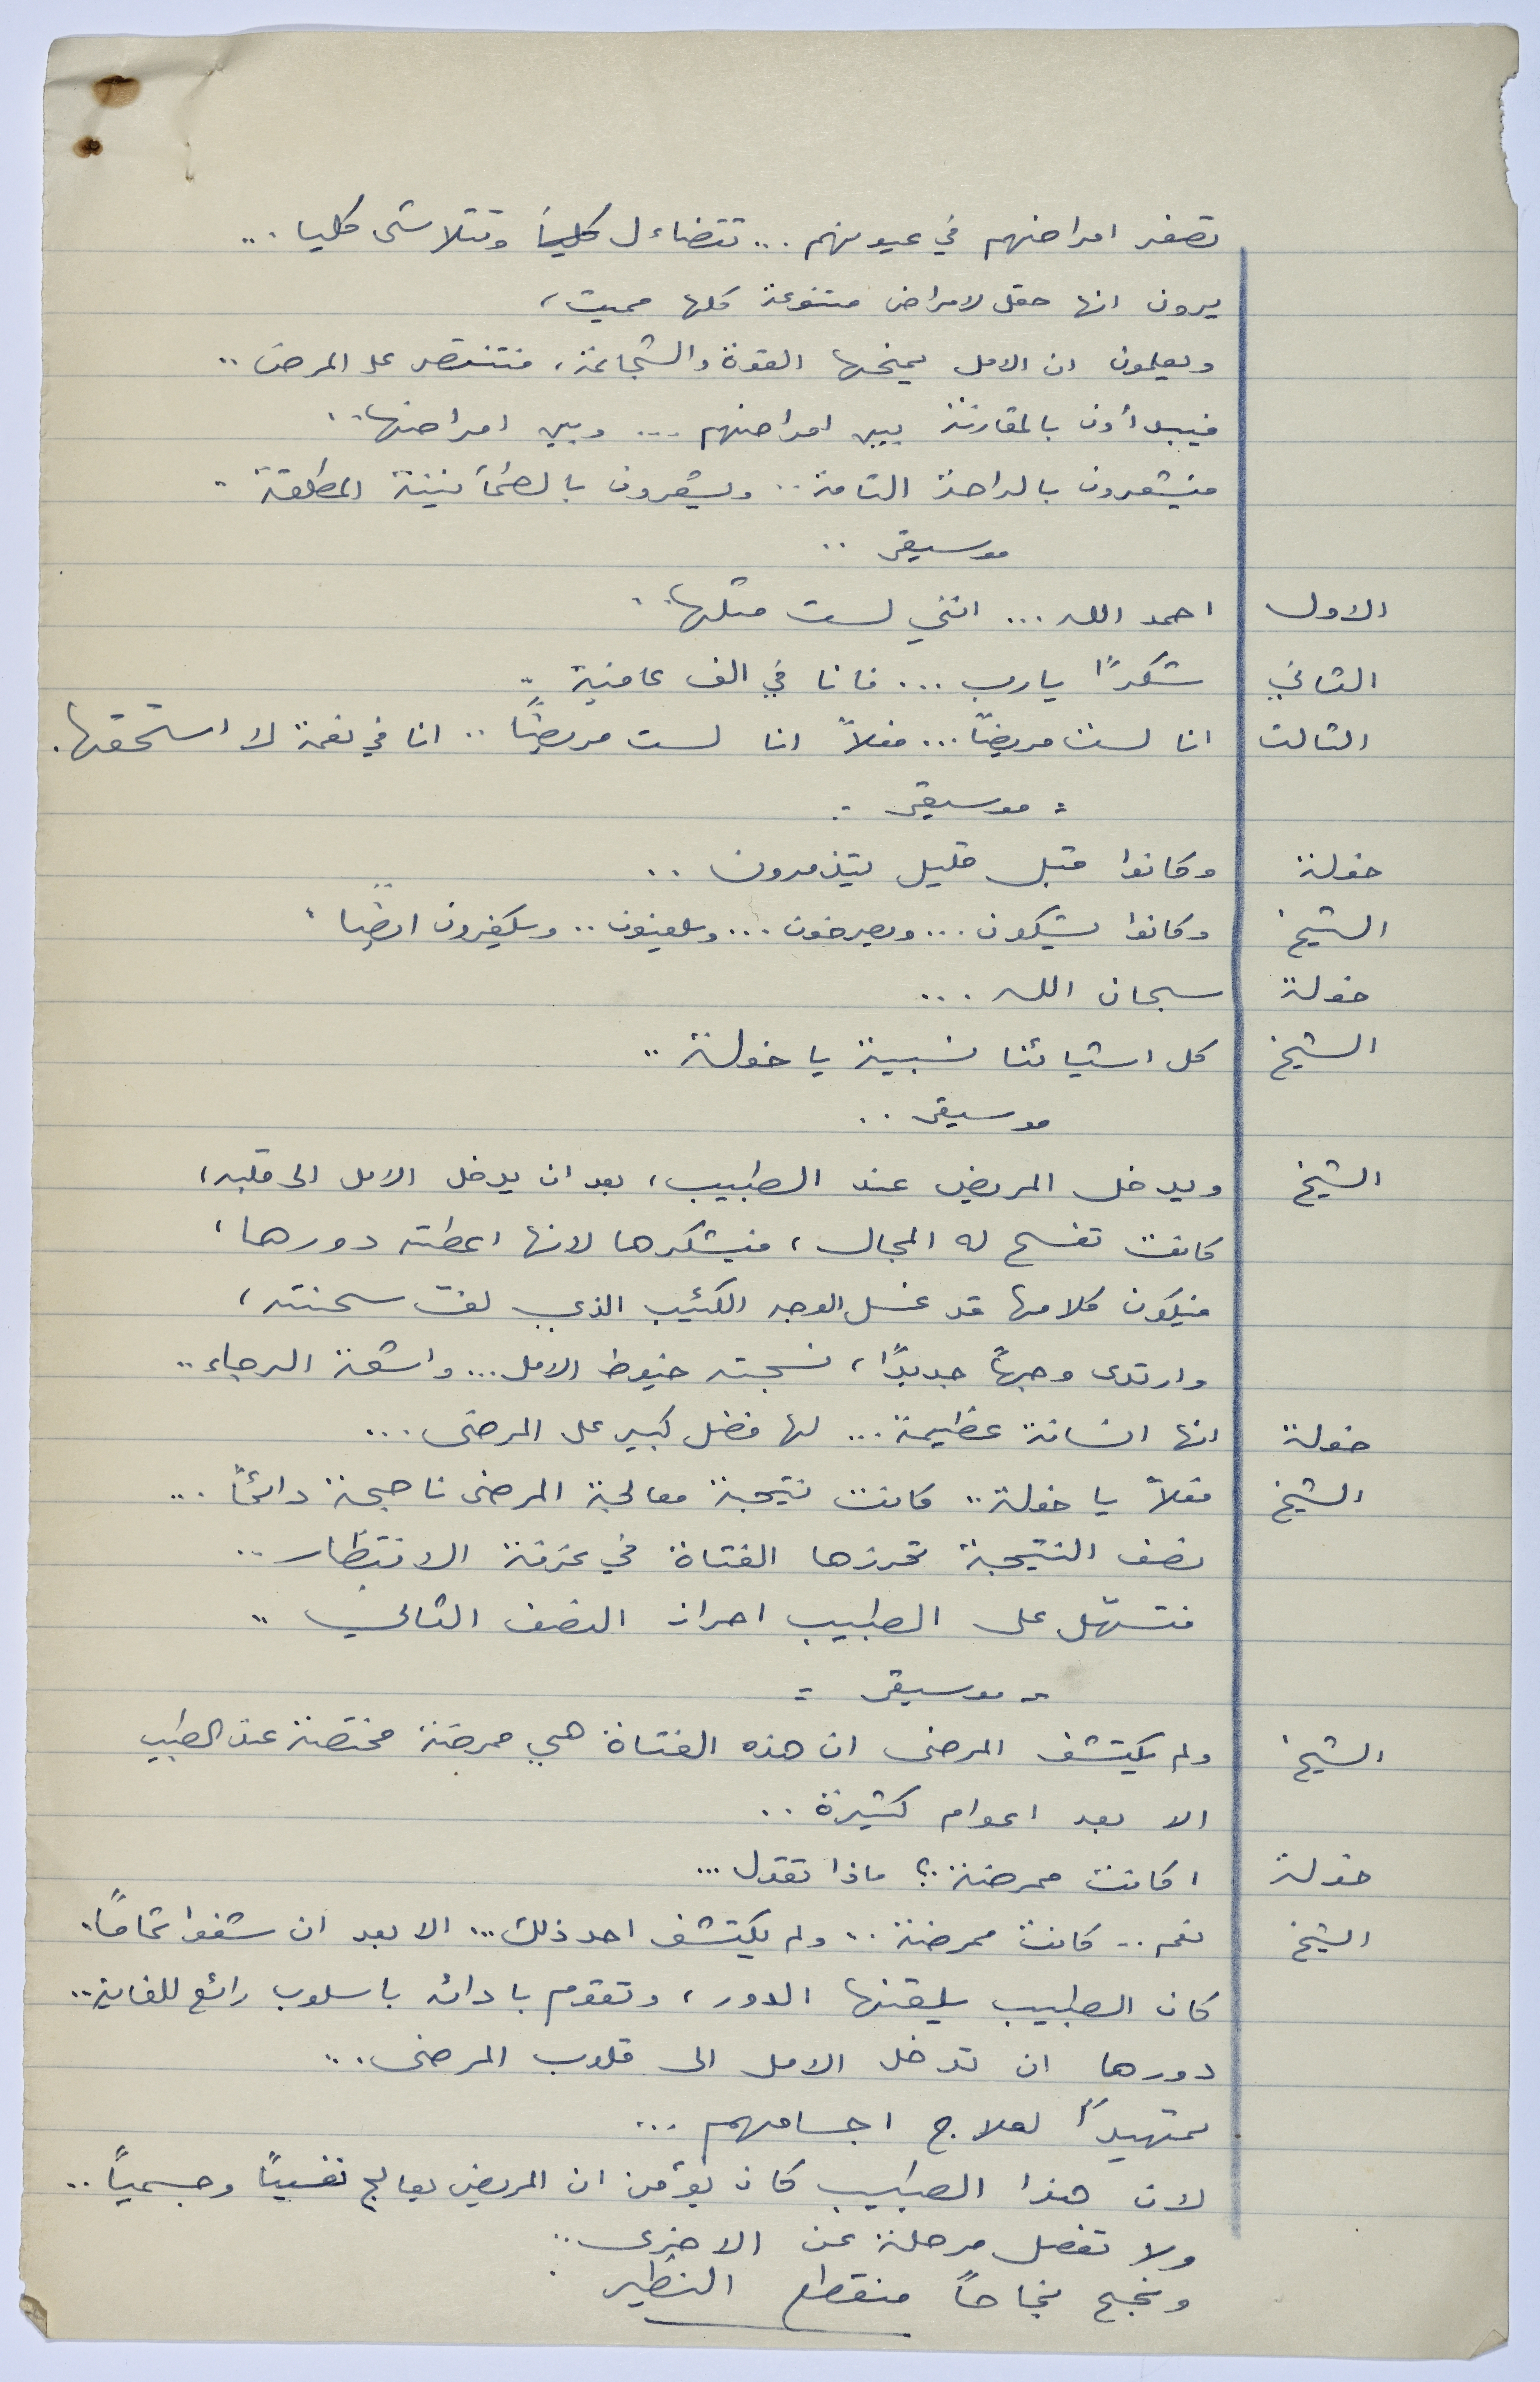 تصغر امراضهم في عيونهم... تتضاءل كلياً وتتلاشى كليا...
يرون انها حقل لامراض متنوعة كلها مميت،
ويعلمون ان الامل يمنحها القوة والشجاعة، فتنتصر على المرض..
فيبدأون بالمقارنة بين امراضهم... وبين امراضها..
فيشعرون بالراحة التامة.. ويشعرون بالطمأنينة المطلقة..
موسيقى..
الاول احمد الله... انني لست مثلها..
الثاني شكراً يارب... فانا في الف عافية..
الثالث انا لست مريضاً... فعلاً انا لست مريضاً.. انا في نعمة لا استحقها.
= موسيقى =
خولة وكانوا قبل قليل يتذمرون..
الشيخ وكانوا يشكون... ويصرخون... ويلعنون.. ويكفرون ايضاً.
خولة سبحان الله...
الشيخ كل اشيائنا نسبية يا خولة..
موسيقى..
الشيخ ويدخل المريض عند الطبيب، بعد ان يدخل الامل الى قلبه،
كانت تفسح له المجال، فيشكرها لانها اعطته دورها،
فيكون كلامها قد غسل الوجه الكئيب الذي لف سحنته،
وارتدى وجهاً جديداً، نسجته خيوط الامل... واشعة الرجاء..
خولة انها انسانة عظيمة... لها فضل كبير على المرضى...
الشيخ فعلاً يا خولة.. كانت نتيجة معالجة المرضى ناجحة دائماً...
نصف النتيجة تحرزها الفتاة في غرفة الانتظار..
فتسهّل على الطبيب احراز النصف الثاني..
= موسيقى =
الشيخ ولم يكتشف المرضى ان هذه الفتاة هي ممرضة مختصة عند الطبيب
الا بعد اعوام كثيرة..
خولة اكانت ممرضة؟ ماذا تقول...
الشيخ نعم.. كانت ممرضة.. ولم يكتشف احد ذلك... الا بعد ان شفوا تماماً..
كان الطبيب يلقنها الدور، وتقوم بادائه باسلوب رائع للغاية..
دورها ان تدخل الامل الى قلوب المرضى...
تمهيداً لعلاج اجسامهم...
لان هذا الطبيب كان يؤمن ان المريض يعالج نفسياً وجسمياً..
ولا تفصل مرحلة عن الاخرى..
ونجح نجاحاً منقطع النظير.